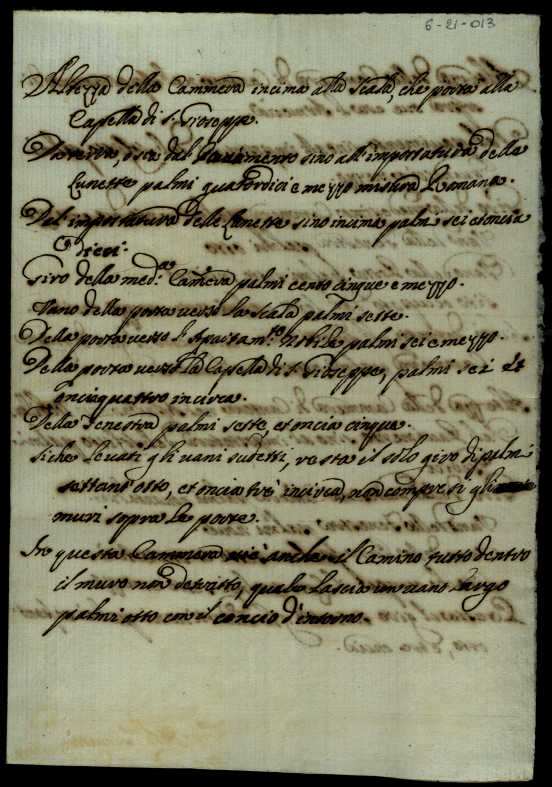 6-21-013
Altezza della Cammera incima alla Scala, che porta alla
Capella di S. Gioseppe.
Da terra, o sia dal Pavimento sino all'importatura delle
Lunette palmi quatordici e mezzo misura Romana.
Del importatura delle Lunette sino incima palmi sei et oncia
dieci.
Giro della med.a Camera palmi cento cinque e mezzo.
Vano della porta verso la Scala palmi sette.
Della porta verso l'Apartam.to Nobile palmi sei e mezzo.
Della porta verso la Capella di S. Gioseppe, palmi sei et
oncie quattro incirca.
Della Fenestra palmi sette, et oncia cinque.
Siche levati gli vani sudetti, resta il solo giro di palmi
settant'otto, et oncia trè incirca, non compresi gli
muri sopra le porte.
In questa Cammera vi è anche il Camino tutto dentro
il muro non detratto, quale lascia un vano largo
palmi otto con il concio d'intorno.